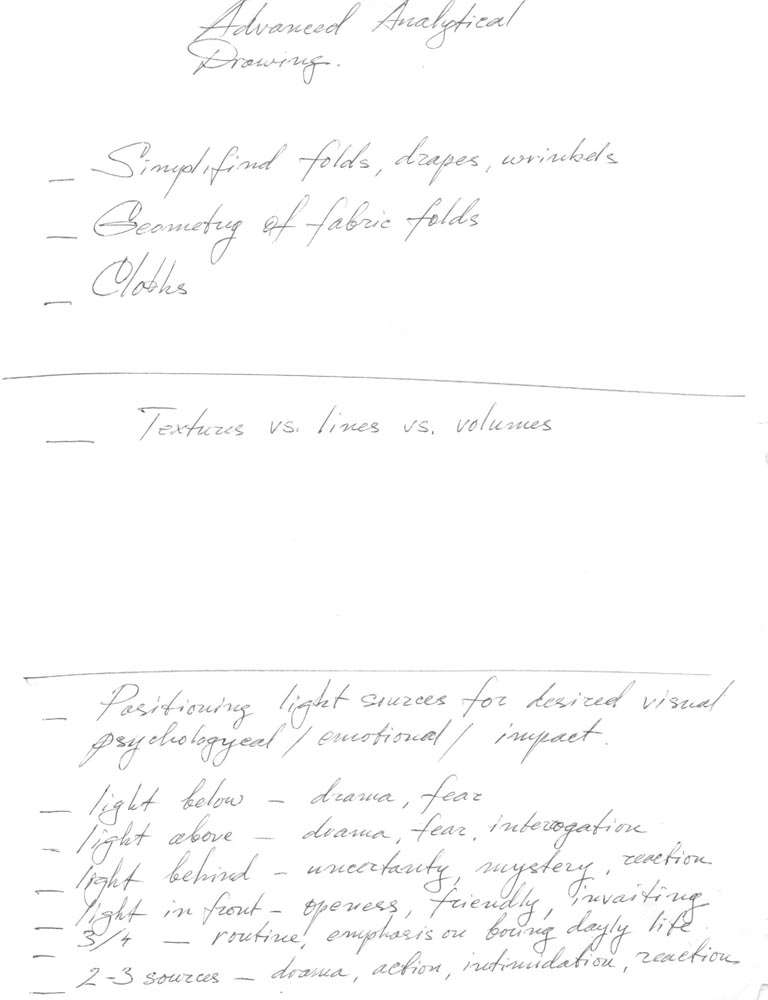 Advanced Analytical
Drawing.
— Simplifind folds, drapes, wrinkels
— Geometry of fabric folds
— Cloths
— Textures vs. lines vs. volumes
— Positioning light sources for desired visual
psychologycal / emotional / impact.
— light below – drama, fear
— light above – drama, fear, interogation
— light behind – uncertanty, mystery, reaction
— light in front – openess, friendly, invaiting
— 3/4 – routine, emphasis on boring dayly life
— 2-3 sources – drama, action, intimidation, reaction